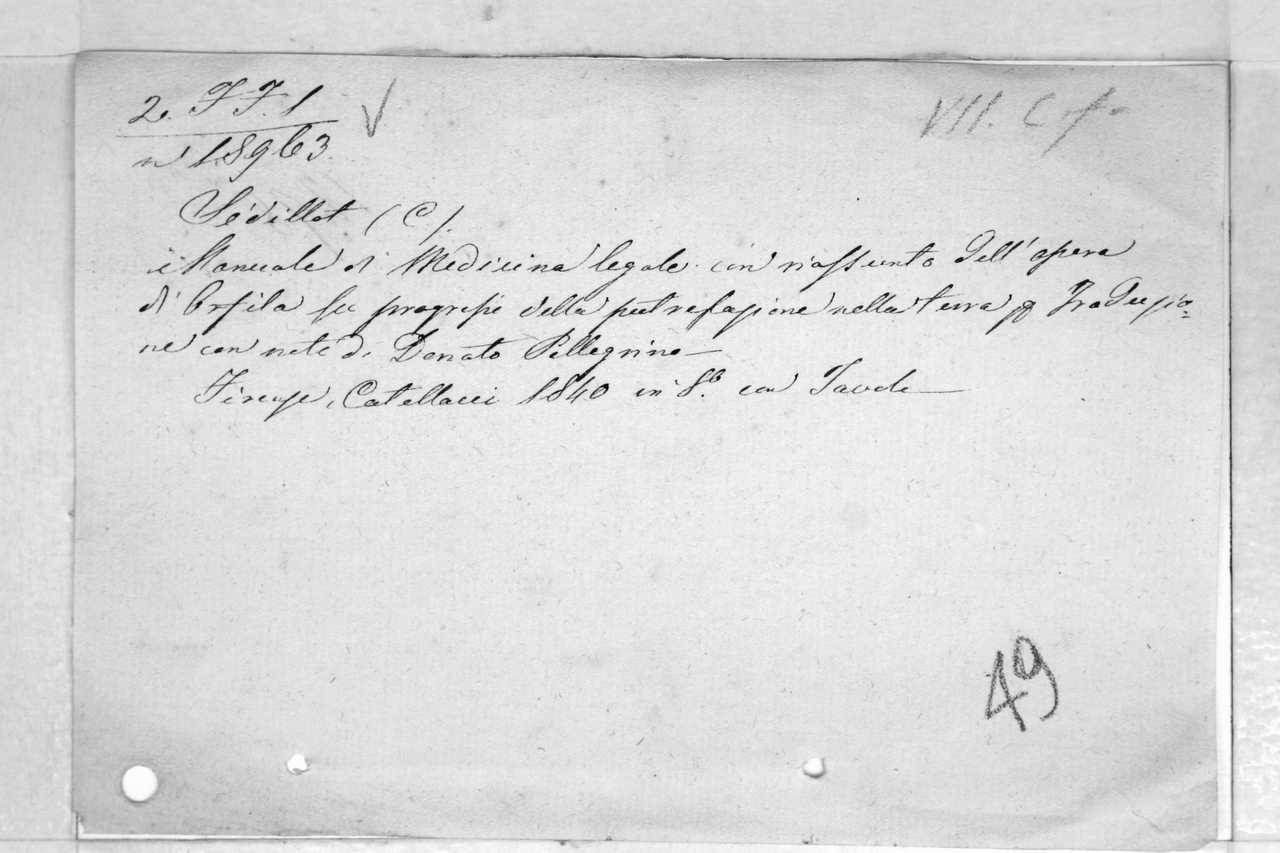 2. FF. 1
VII. C.
n° 18963.
Sédillot (C).
Manuale di Medicina legale con riassunto dell'opera
di Orfila su progressi della putrefazione nella terra Traduzio=
ne con note di Donato Pellegrino—
Firenze, Catellacci 1840 in 8.° con Tavole—
49